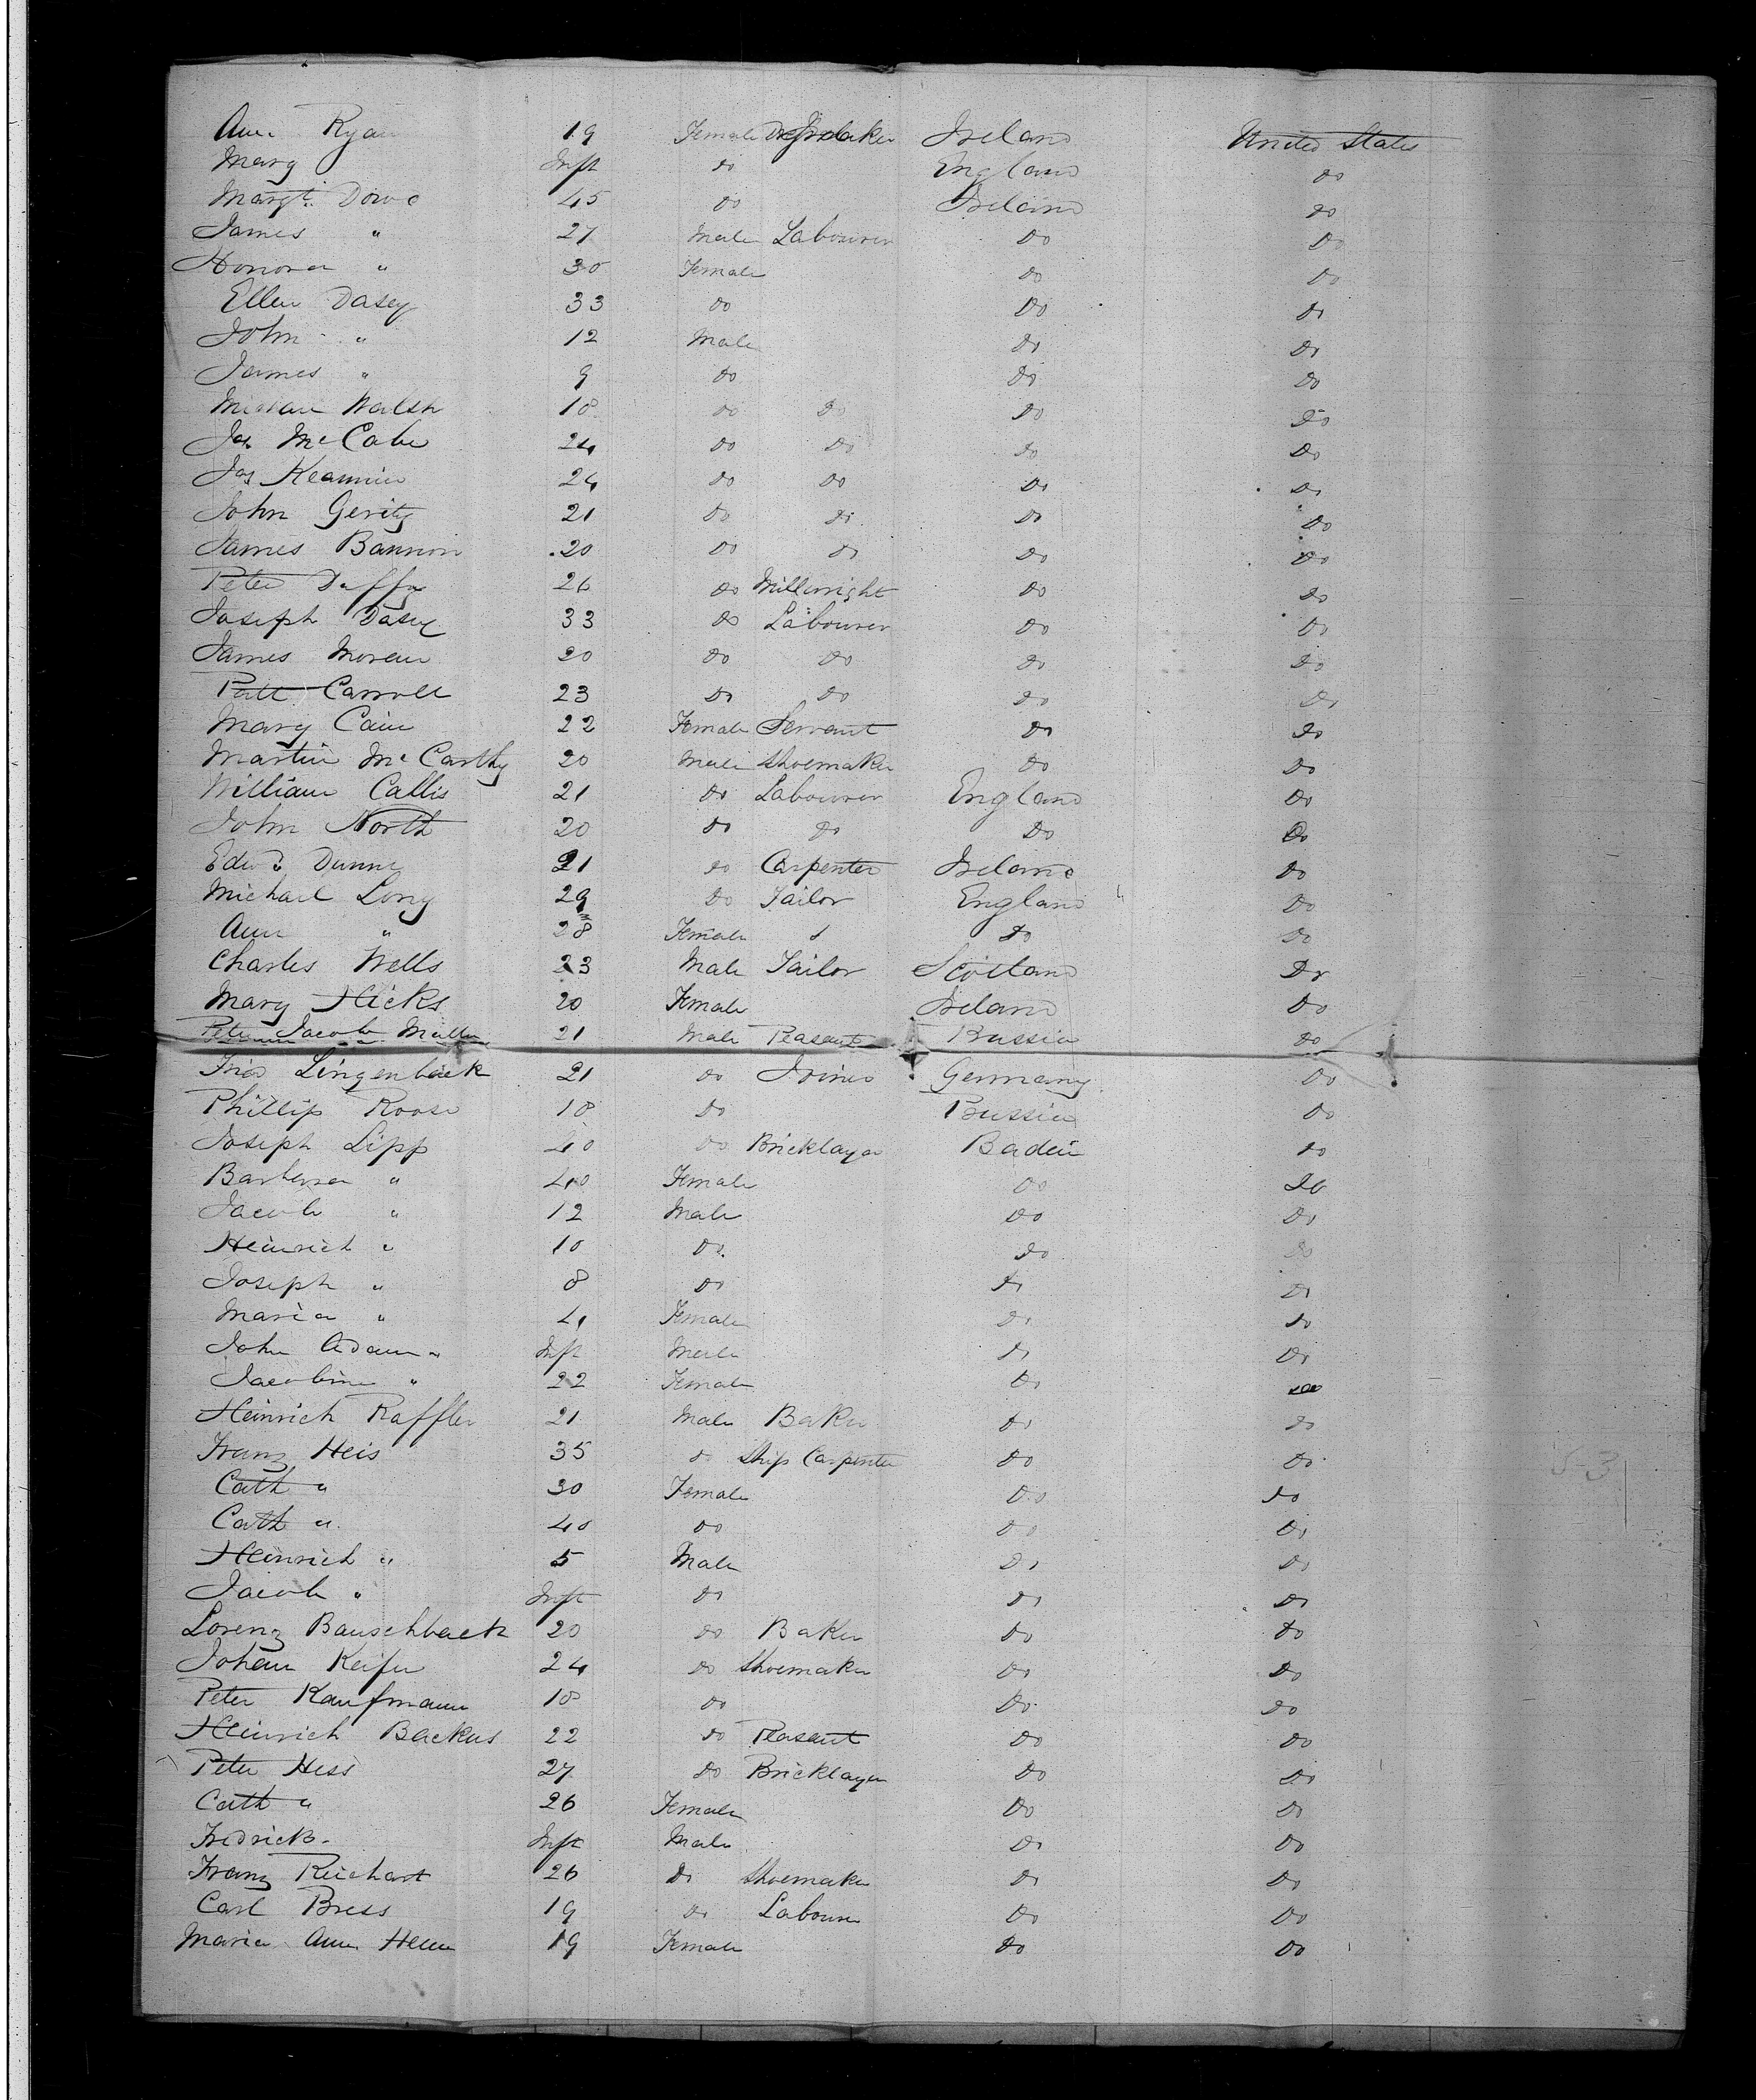 Ann Ryan 19 Female Dressmaker Ireland United States
Mary Inft do England do
Margt. Dowd 45 do Ireland do
James " 27 Male Labourer Do Do
Honora " 30 Female do do
Ellen Dasey 33 do Do Do
John " 12 Male Do Do
James " 9 do Do Do
Walsh 18 do Do Do Do
Jas McCabe 24 do Do Do Do
Jas 24 do Do Do Do
John Gerity 21 Do Do Do Do
James Bannon 20 do Do Do Do
Peter Duffy 26 do Millwright do Do
Joseph Dasey 33 do Labourer Do Do
James Moran 20 do do do Do
Patt Carroll 23 Do do do Do
Mary Cain 22 Female Servant Do Do
Martin McCarthy 20 Male Shoemaker do Do
William Callis 21 Do Labourer England Do
John North 20 Do Do Do Do
Edwd Dunne 21 do Carpenter Ireland do
Michael Long 29 Do Tailor England Do
Ann " 28 Female Do Do
Charles Wells 23 Male Tailor Scotland Do
Mary Hicks 20 Female Ireland Do
Peter Jacob 21 Male Peasant Prussia do
Lingenback 21 do Joiner Germany Do
Phillip Roose 18 Do Prussia Do
Joseph Lipp 40 do Bricklayer Baden do
Barbera " 40 Female Do Do
Jacob " 12 Male do Do
Heinrich " 10 do. do do
Joseph " 8 do Do Do
Maria " 4 Female Do do
John Adam " Inft Male Do Do
Jacobine " 22 Female Do do
Heinrich Raffler 21 Male Baker Do do
Franz Heis 35 do Ship Carpenter Do Do
Cath " 30 Female Do do
Cath " 40 do Do Do
Heinrich " 5 Male Do Do
Jacob " Inft do Do Do
Lorenz Bauschback 20 do Baker Do Do
Johan Keifer 24 do Shoemaker Do Do
Peter Kaufmann 18 do Do do
Heinrich Backus 22 do Peasant Do do
Peter Hess 27 do Bricklayer Do Do
Cath " 26 Female Do Do
Fredrick Inft Male Do Do
Franz Reichart 26 Do Shoemaker Do Do
Carl Bress 19 do Labourer Do Do
Maria Ann 19 Female Do do